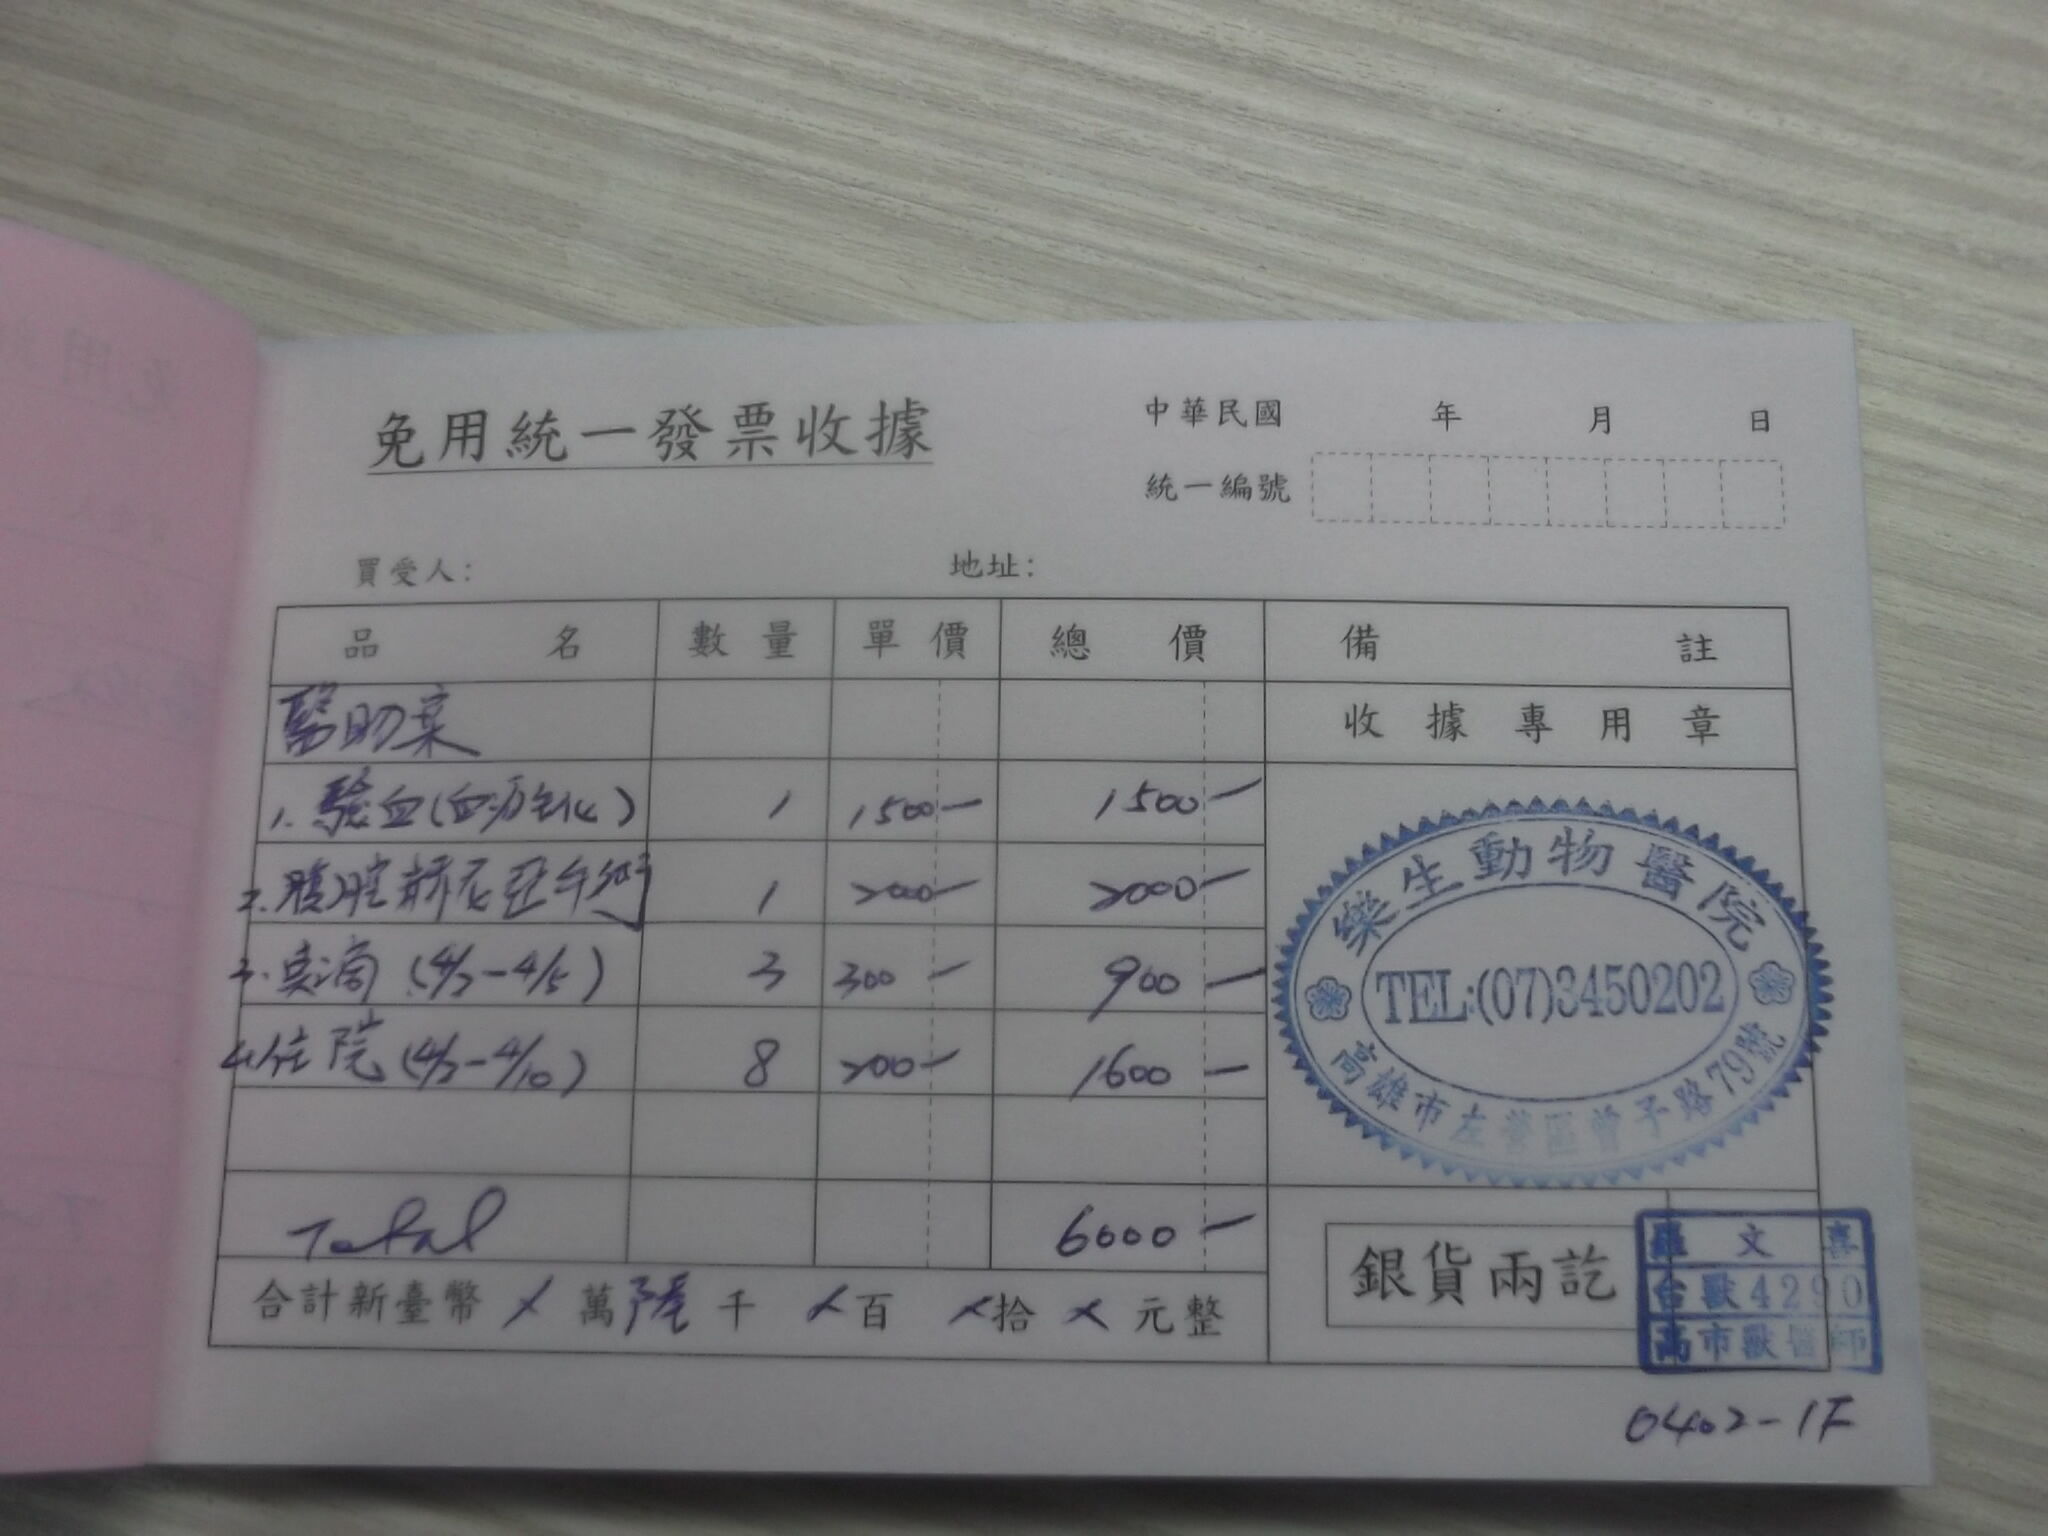 免用統一發票收據
中華民國 年 月 日
統一編號
買受人: 地址:
品名 數量 單價 總價 備註
醫助案 收據專用章
1. 驗血(血球生化) 1 1500 1500
2. 腹腔赫尼亞手術 1 2000 2000
3. 點滴 (4/2-4/5) 3 300 900
4. 住院 (4/2-4/10) 8 200 1600
Total 6000
合計新臺幣 ㄨ 萬 陸 千 ㄨ 百 ㄨ 拾 ㄨ 元整
樂生動物醫院
TEL:(07)3450202
高雄市左營區曾子路79號
銀貨兩訖
羅文喜
台獸4290
高市獸醫師
0402-1F